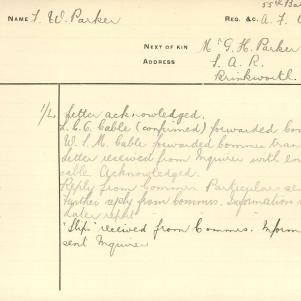 55th Ba
NAME F. W. Parker REG. &C. A. F. 
NEXT OF KIN Mr G. H. Parker
ADDRESS S. A. R.
Brinkworth.
1/L Letter acknowledged.
L.C.C. Cable (confirmed) forwarded Com
W. S. M. Cable forwarded Commee tran
Letter received from Inquirer with en
cable Acknowledged.
Reply from Commee Particulars sen
Further reply from Commes. Information s
later reps
"Slip" received from Commes. Inform
sent Inquirer